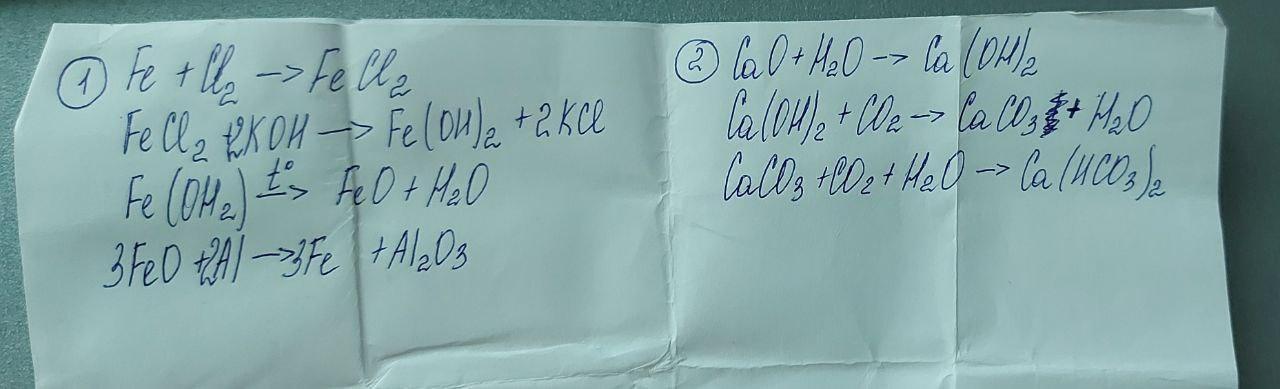 ① Fe + Cl₂ → FeCl₂
FeCl₂ + 2KOH → Fe(OH)₂ + 2KCl
Fe(OH₂) t°→ FeO + H₂O
3FeO + 2Al → 3Fe + Al₂O₃
② CaO + H₂O → Ca(OH)₂
Ca(OH)₂ + CO₂ → CaCO₃ + H₂O
CaCO₃ + CO₂ + H₂O → Ca(HCO₃)₂